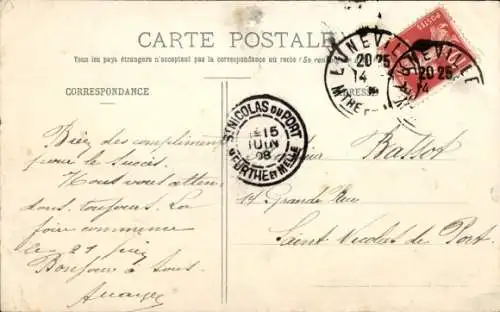 CARTE POSTALE
Tous les pays étrangers n'acceptent pas la correspondance au recto (Se
CORRESPONDANCE
POSTES
LUNÉVILLE
20 25
14
MTHE
LUNÉVILLE
20 25
14
ST NICOLAS DU PORT
15
JUIN
08
MEURTHE ET MELLE
Bien des compliments
pour le succès.
Nous vous atten
dons toujours. La
foire commence
le 21 juin
Bonjour à tous.
Bassot
14 Grande Rue
Saint Nicolas de Port